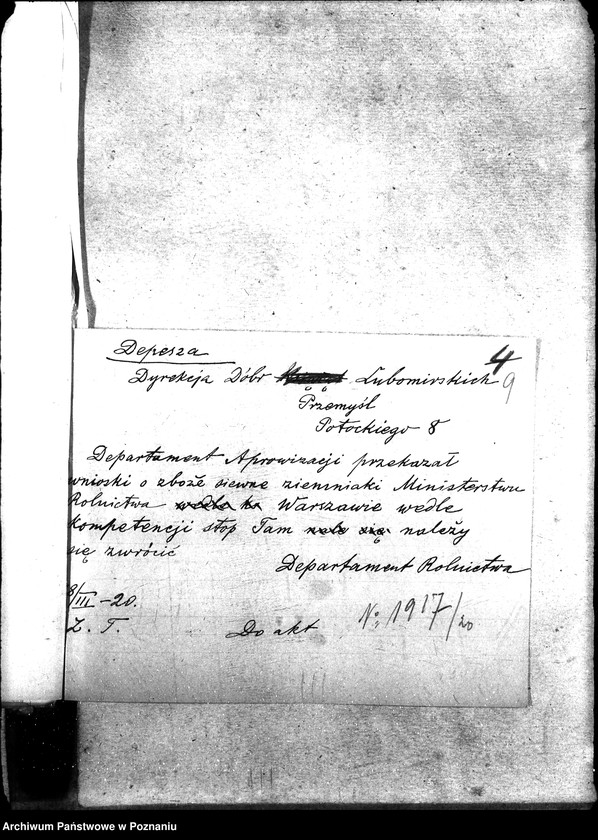 Depesza
4
9
Dyrekcja Dóbr Lubomirskich
Przemyśl
Potockiego 8
Departament Aprowizacji przekazał
wnioski o zboże siewne ziemniaki Ministerstwu
Rolnictwa wedle Warszawie wedle
kompetencji stop Tam należy
się zwrócić
Departament Rolnictwa
8/III -20.
Z. T.
Do akt
No 1917/20
Archiwum Państwowe w Poznaniu